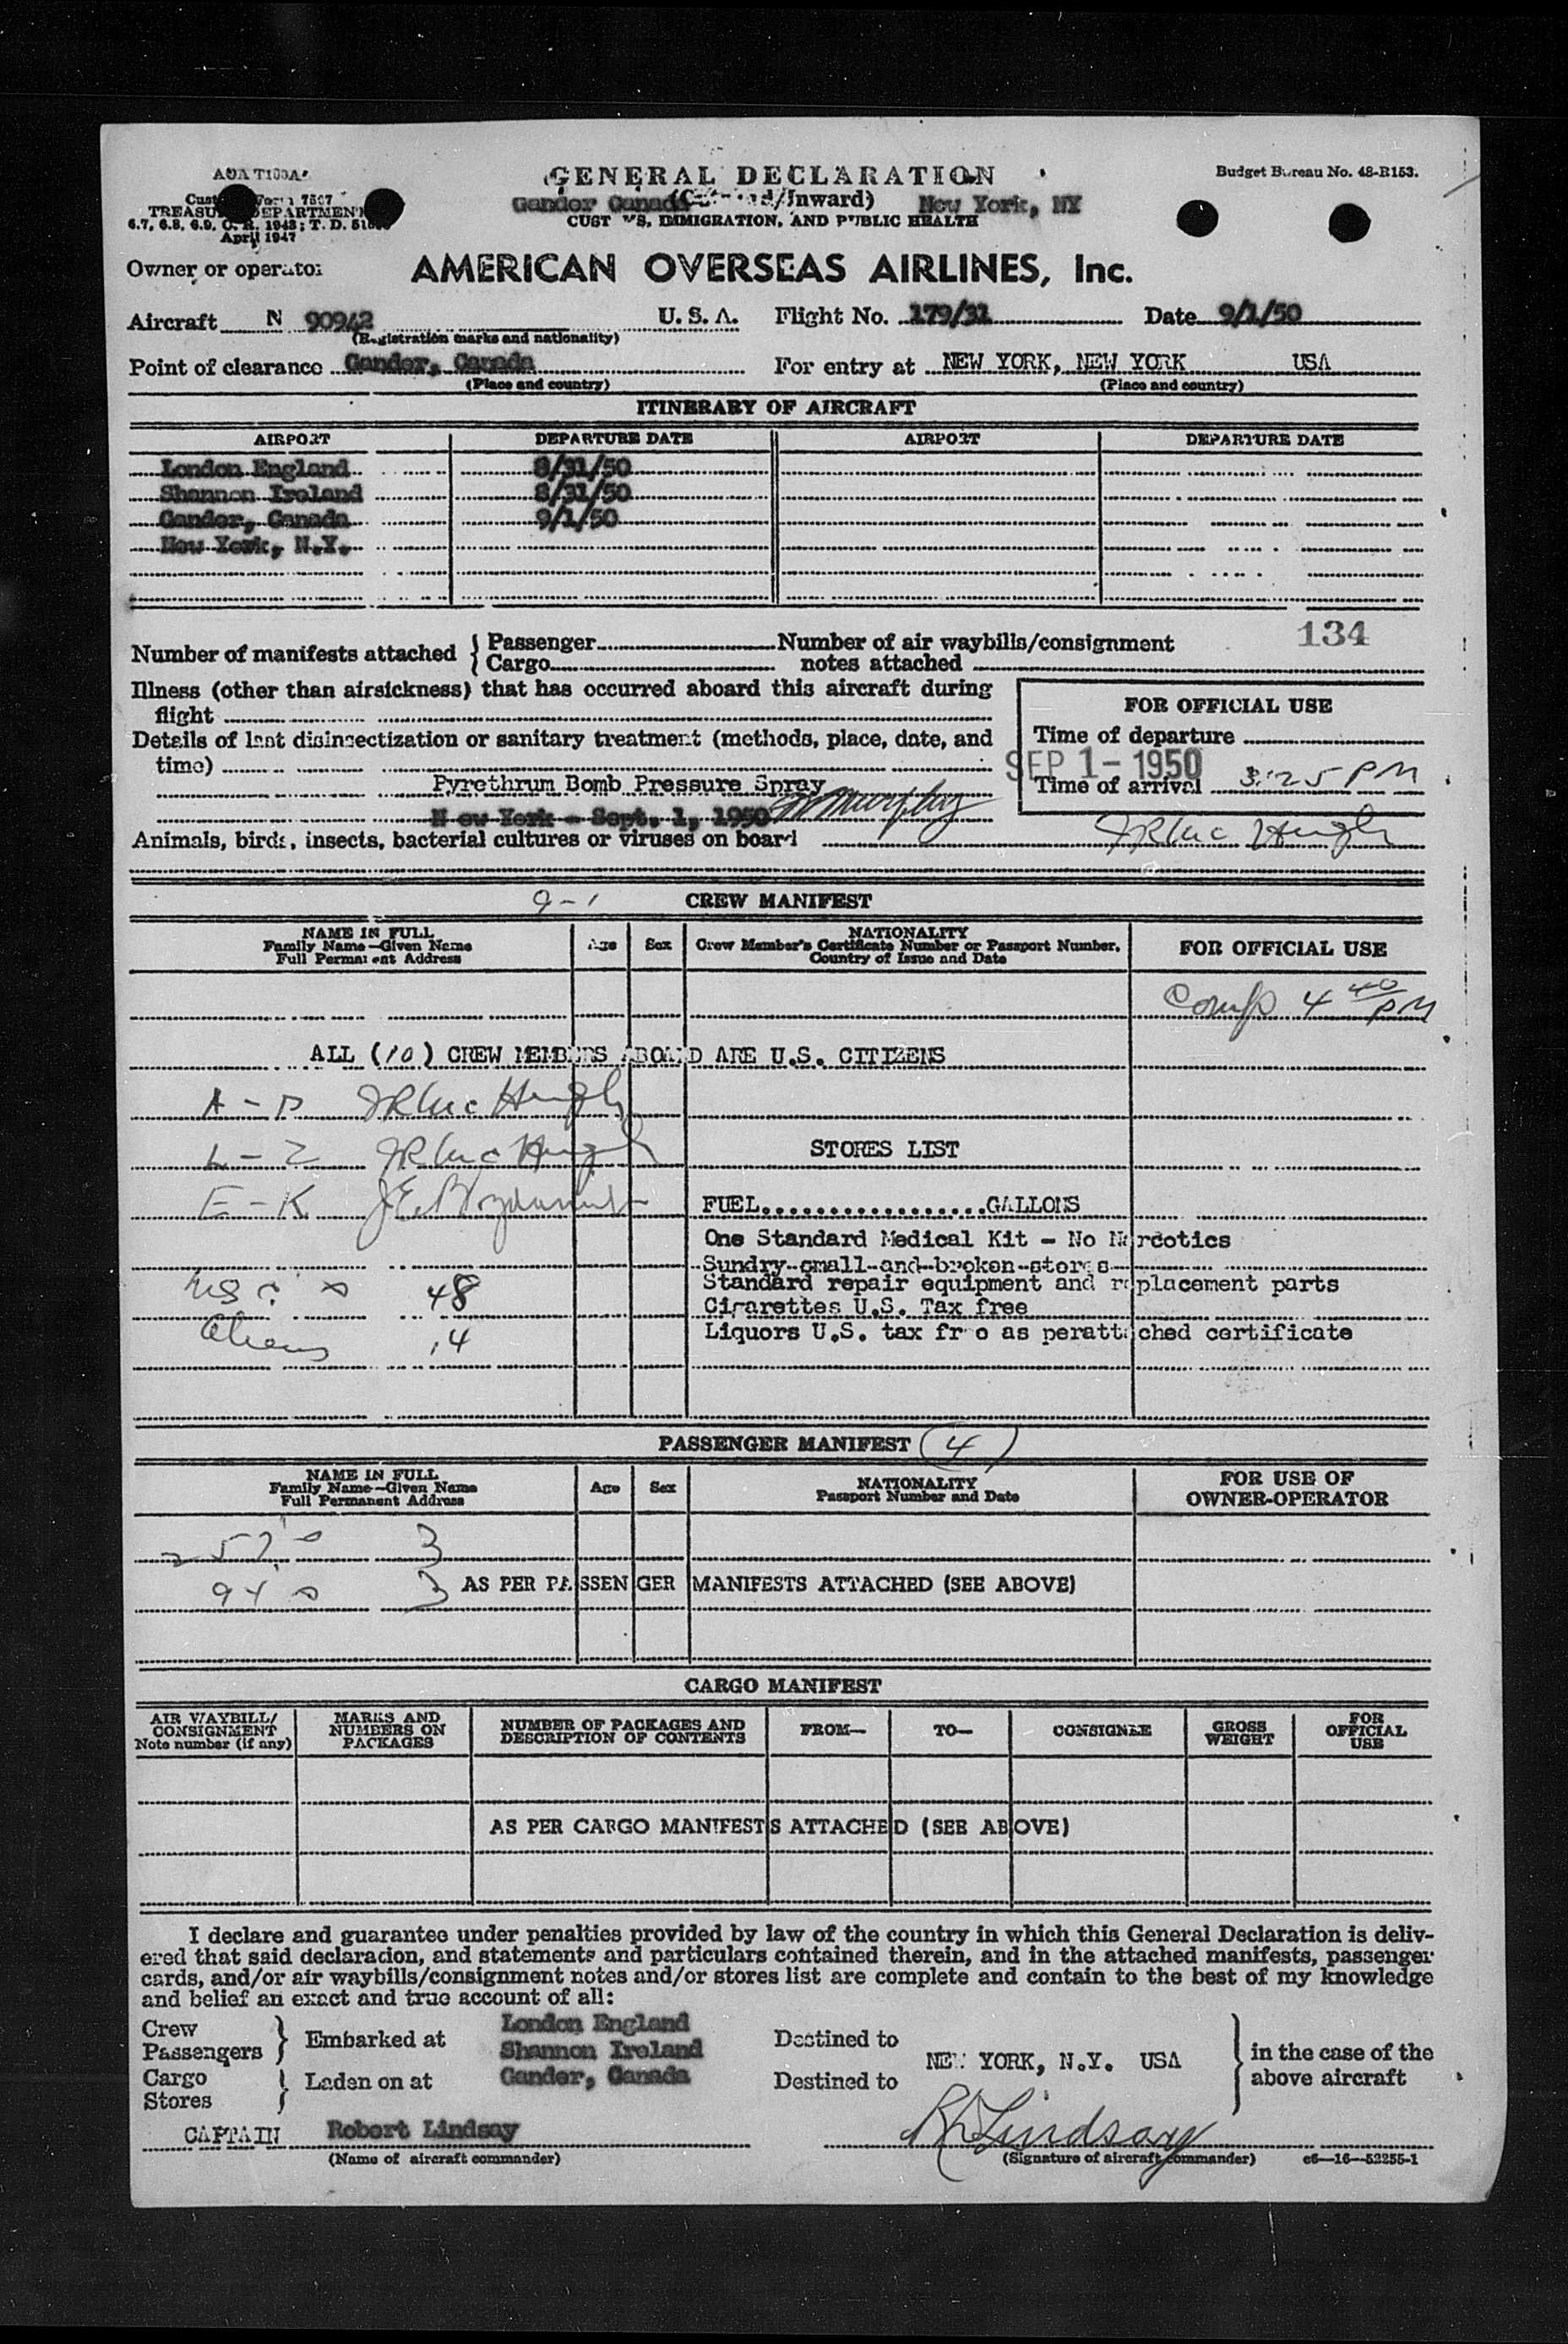 GENERAL DECLARATION
Budget Bureau No. 48-R153.
Form 7507
(Inward)
Gander Canada New York, NY
TREASURY DEPARTMENT
CUSTOMS, IMMIGRATION, AND PUBLIC HEALTH
6.7, 6.8, 6.9, C. R. 1943; T. D.
April 1947
Owner or operator AMERICAN OVERSEAS AIRLINES, Inc.
Aircraft N 90942 U. S. A. Flight No. 179/31 Date 9/1/50
(Registration marks and nationality)
Point of clearance Gander, Canada For entry at NEW YORK, NEW YORK USA
(Place and country) (Place and country)
ITINERARY OF AIRCRAFT
AIRPORT DEPARTURE DATE AIRPORT DEPARTURE DATE
London England 8/31/50
Shannon Ireland 8/31/50
Gander, Canada 9/1/50
New York, N.Y.
134
Number of manifests attached { Passenger Number of air waybills/consignment
Cargo notes attached
Illness (other than airsickness) that has occurred aboard this aircraft during
flight
FOR OFFICIAL USE
Details of last disinsectization or sanitary treatment (methods, place, date, and
time)
Time of departure
SEP 1 - 1950
Pyrethrum Bomb Pressure Spray
Time of arrival 3:25 PM
New York - Sept. 1, 1950 Murphy
Animals, birds, insects, bacterial cultures or viruses on board
JR McHugh
9-1 CREW MANIFEST
NAME IN FULL
Family Name—Given Name
Full Permanent Address
Age Sex
NATIONALITY
Crew Member's Certificate Number or Passport Number,
Country of Issue and Date
FOR OFFICIAL USE
Comp 4 40 PM
ALL (10) CREW MEMBERS ABOARD ARE U.S. CITIZENS
A - D JR McHugh
L - Z JR McHugh
STORES LIST
E - K
FUEL..................GALLONS
One Standard Medical Kit - No Narcotics
Sundry small and broken stores
Standard repair equipment and replacement parts
USC's 48
Cigarettes U.S. Tax free
Aliens 14
Liquors U.S. tax free as per attached certificate
PASSENGER MANIFEST (4)
NAME IN FULL
Family Name—Given Name
Full Permanent Address
Age Sex
NATIONALITY
Passport Number and Date
FOR USE OF
OWNER-OPERATOR
257's 3
94 s 3 AS PER PASSENGER MANIFESTS ATTACHED (SEE ABOVE)
CARGO MANIFEST
AIR WAYBILL/
CONSIGNMENT
Note number (if any)
MARKS AND
NUMBERS ON
PACKAGES
NUMBER OF PACKAGES AND
DESCRIPTION OF CONTENTS
FROM— TO— CONSIGNEE
GROSS
WEIGHT
FOR
OFFICIAL
USE
AS PER CARGO MANIFESTS ATTACHED (SEE ABOVE)
I declare and guarantee under penalties provided by law of the country in which this General Declaration is deliv-
ered that said declaration, and statements and particulars contained therein, and in the attached manifests, passenger
cards, and/or air waybills/consignment notes and/or stores list are complete and contain to the best of my knowledge
and belief an exact and true account of all:
Crew
Passengers } Embarked at
Cargo
Stores } Laden on at
London England
Shannon Ireland
Gander, Canada
Destined to
Destined to
NEW YORK, N.Y. USA
} in the case of the
above aircraft
CAPTAIN Robert Lindsay
R Lindsay
(Name of aircraft commander) (Signature of aircraft commander) c6—16—52255-1